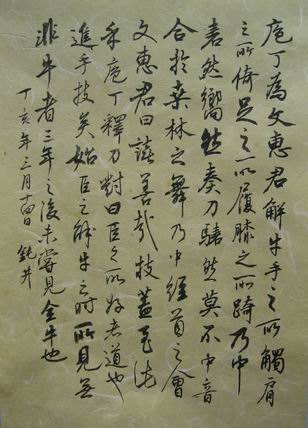 庖丁為文惠君解牛手之所觸肩
之所倚足之所履膝之所踦乃中
砉然嚮然奏刀騞然莫不中音
合於桑林之舞乃中經首之會
文惠君曰譆善哉技蓋至此
乎庖丁釋刀對曰臣之所好者道也
進乎技矣始臣之解牛之時所見無
非牛者三年之後未嘗見全牛也
丁亥年三月十四日